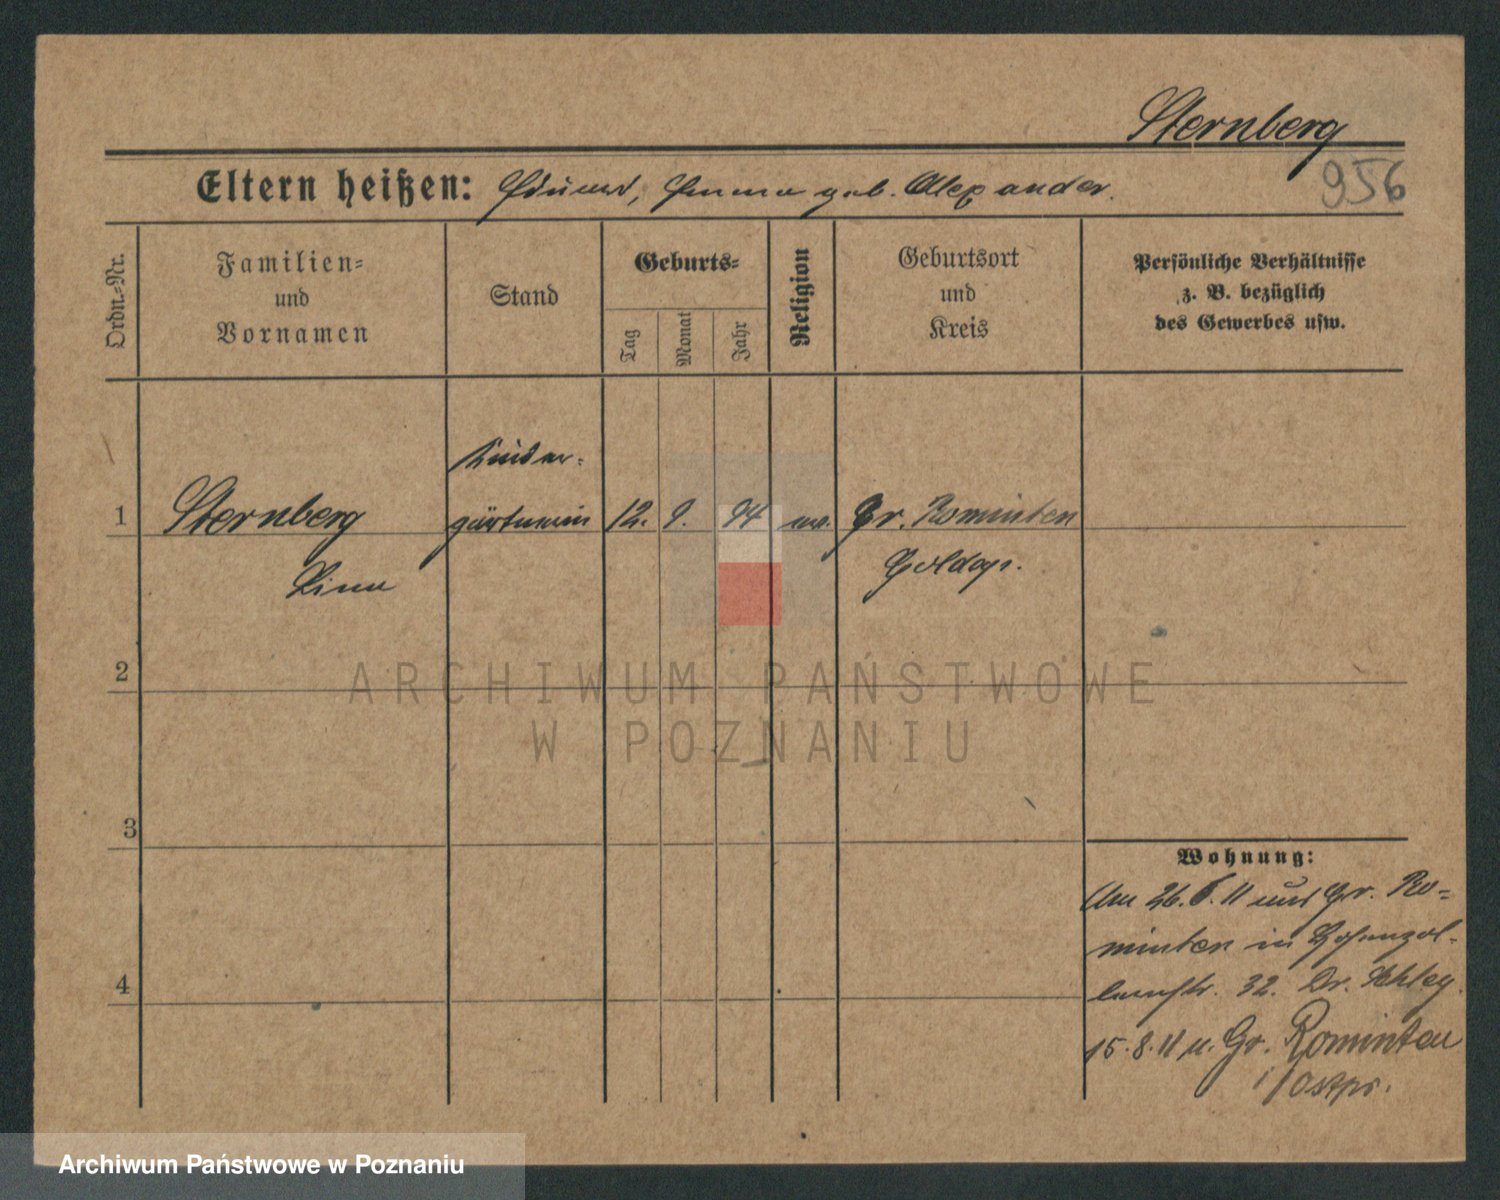 Sternberg
956
Eltern heißen: Eduard, Emma geb. Alexander.
Ordn.-Nr.
Familien-
und
Vornamen
Stand
Geburts-
Tag
Monat
Jahr
Religion
Geburtsort
und
Kreis
Persönliche Verhältnisse
z. B. bezüglich
des Gewerbes usw.
1
Sternberg
Lina
Kinder-
gärtnerin
12. 9. 94
Gr. Rominten
Goldap.
2
3
4
ARCHIWUM PAŃSTWOWE
W POZNANIU
Wohnung:
Am 26. 6. 11 aus Gr. Ro-
minten in Hohenzol-
lernstr. 32. Dr.
15. 8. 11 n. Gr. Rominten
Ostpr.
Archiwum Państwowe w Poznaniu